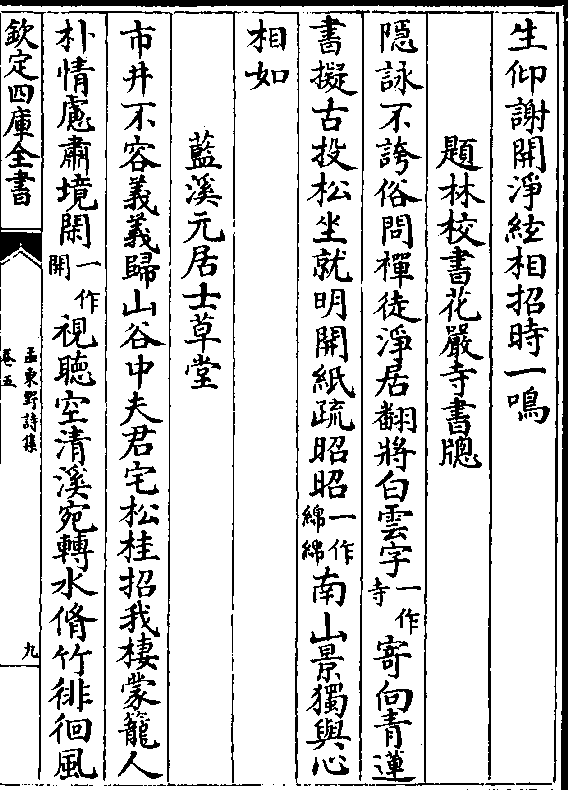 生仰謝開淨絃相招時一鳴
題林校書花嚴寺書䆫
隠詠不誇俗問禪徒淨居翻將白雲字一作寺寄向青蓮
書擬古投松坐就明開紙疏昭昭一作綿綿南山景獨與心
相如
藍溪元居士草堂
市井不容義義歸山谷中夫君宅松桂招我棲蒙籠人
朴情慮肅境閑一作開視聽空清溪宛轉水脩竹徘徊風
欽定四庫全書
孟東野詩集
卷五
九